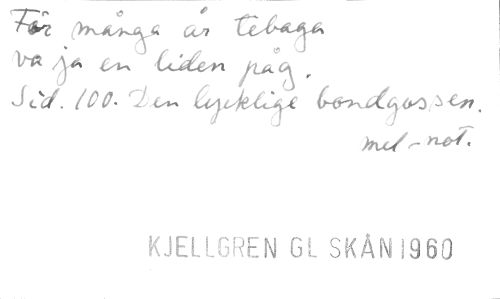 För många år tebaga
va ja en liden påg.
Sid. 100. Den lycklige bondgossen.
mel-not.
KJELLGREN GL SKÅN 1960